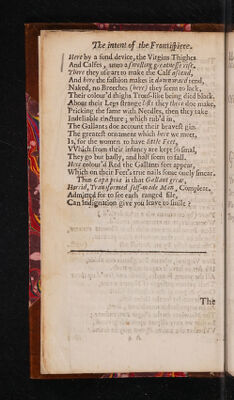 The intent of the Frontispiere.
Here by a fond device, the Virgins Thighes
And Calfes, unto a swelling greatnesse rise,
There they use art to make the Calf ascend,
And here the fashion makes it downward tend,
Naked, no Breeches (here) they seem to lack,
Their colour'd thighs Trous-like being died black.
About their Legs strange lists they there doe make,
Pricking the same with Needles, then they take
Indeliable tincture; which rub'd in,
The Gallants doe account their bravest gin.
The greatest ornament which here we meet,
Is, for the women to have little Feet,
VVhich from their infancy are kept so small,
They go but badly, and half seem to fall.
Here colour'd Red the Gallants feet appear,
Which on their Feet's true nails some ously smear.
Thus Capa pea is that Gallant great,
Horrid, Transformed self-made Man, Compleat.
Admitted for to see each ranged file,
Can Indignation give you leave to smile?
The